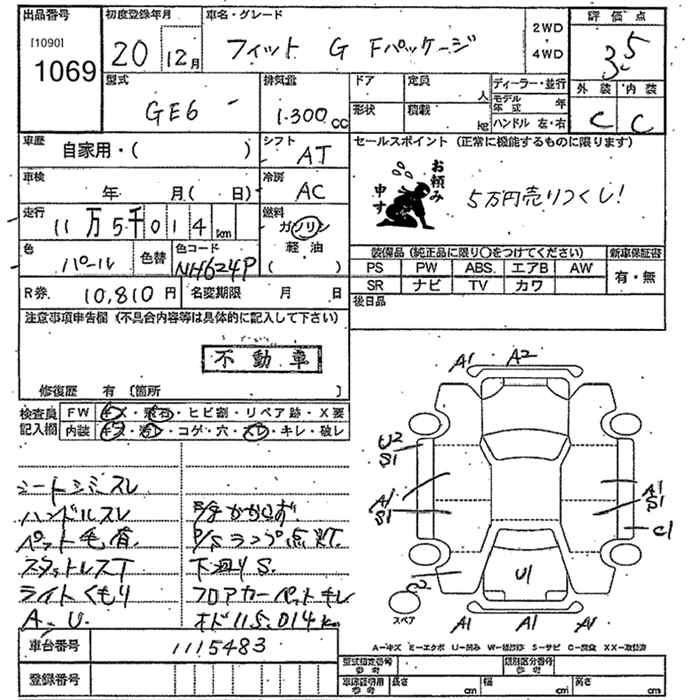 出品番号 初度登録年月 車名・グレード 評価点
[1090]
1069 20 12月 フィット G Fパッケージ 2WD 4WD 3.5
型式 排気量 ドア 定員 人 ディーラー・並行 外装 内装
GE6 1.300cc 形状 積載 kg モデル年式 年 C C
ハンドル 左・右
車歴 自家用・( ) シフト AT セールスポイント (正常に機能するものに限ります)
車検 年 月(日) 冷房 AC お頼み申す 5万円売りつくし!
走行 11万5千014km 燃料 ガソリン 軽油 ( )
色 パール 色替 色コード NH624P
装備品(純正品に限り○をつけてください) 新車保証書
PS PW ABS. エアB AW 有・無
SR ナビ TV カワ
R券 10,810円 名変期限 月 日 後日品
注意事項申告欄(不具合内容等は具体的に記入して下さい)
不動車
修復歴 有 〔箇所 〕
検査員記入欄 FW キズ・飛石・ヒビ割・リペア跡・X要
内装 キズ・汚れ・コゲ・穴・スレ・キレ・破レ
A1 A2 A1
U2 S1
A1 S1 A1 S1
C1
C2 U1
スペア A1 A1 A1
シートシミスレ
ハンドルスレ
ペット毛有 P/Sランプ点灯
スタットレスT 下廻りS
ライトくもり フロアカーペットキレ
A.U. オド115.014km
A-キズ E-エクボ U-凹み W-補修跡 S-サビ C-腐食 XX-取替済
車台番号 1115483
型式指定番号 参考 類別区分番号 参考
登録番号 車庫証明用 参考 長さ cm 幅 cm 高さ cm